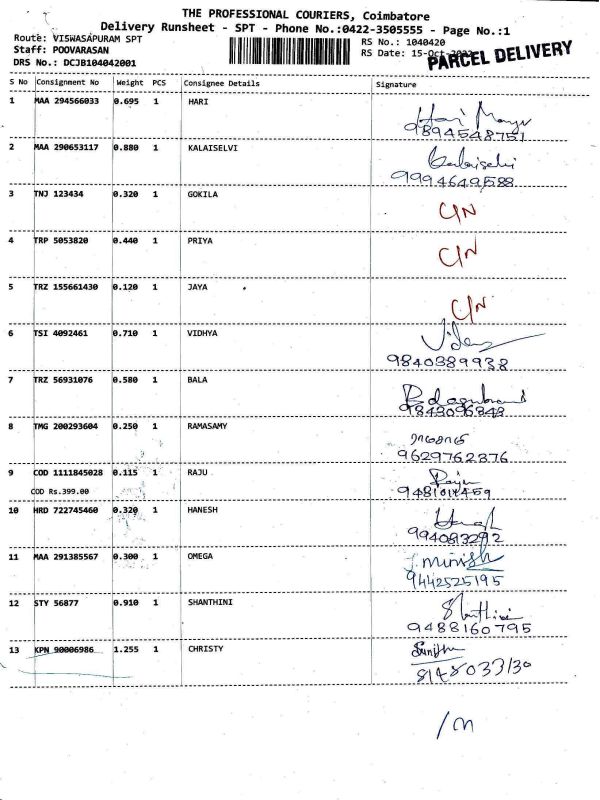 THE PROFESSIONAL COURIERS, Coimbatore
Delivery Runsheet - SPT - Phone No.:0422-3505555 - Page No.:1
Route: VISWASAPURAM SPT
RS No.: 1040420
Staff: POOVARASAN
RS Date: 15-Oct-
PARCEL DELIVERY
DRS No.: DCJB104042001
S No Consignment No Weight PCS Consignee Details Signature
1 MAA 294566033 0.695 1 HARI Hari
9894548751
2 MAA 290653117 0.880 1 KALAISELVI Kalaiselvi
9994649588
3 TNJ 123434 0.320 1 GOKILA C/N
4 TRP 5053820 0.440 1 PRIYA C/N
5 TRZ 155661430 0.120 1 JAYA C/N
6 TSI 4092461 0.710 1 VIDHYA
9840389938
7 TRZ 56931076 0.580 1 BALA
9843096848
8 TMG 200293604 0.250 1 RAMASAMY
9629762376
9 COD 1111845028 0.115 1 RAJU Raju
COD Rs.399.00
10 HRD 722745460 0.320 1 HANESH
994093292
11 MAA 291385567 0.300 1 OMEGA
9442525195
12 STY 56877 0.910 1 SHANTHINI Shanthini
9488160795
13 KPN 90006986 1.255 1 CHRISTY
8148033130